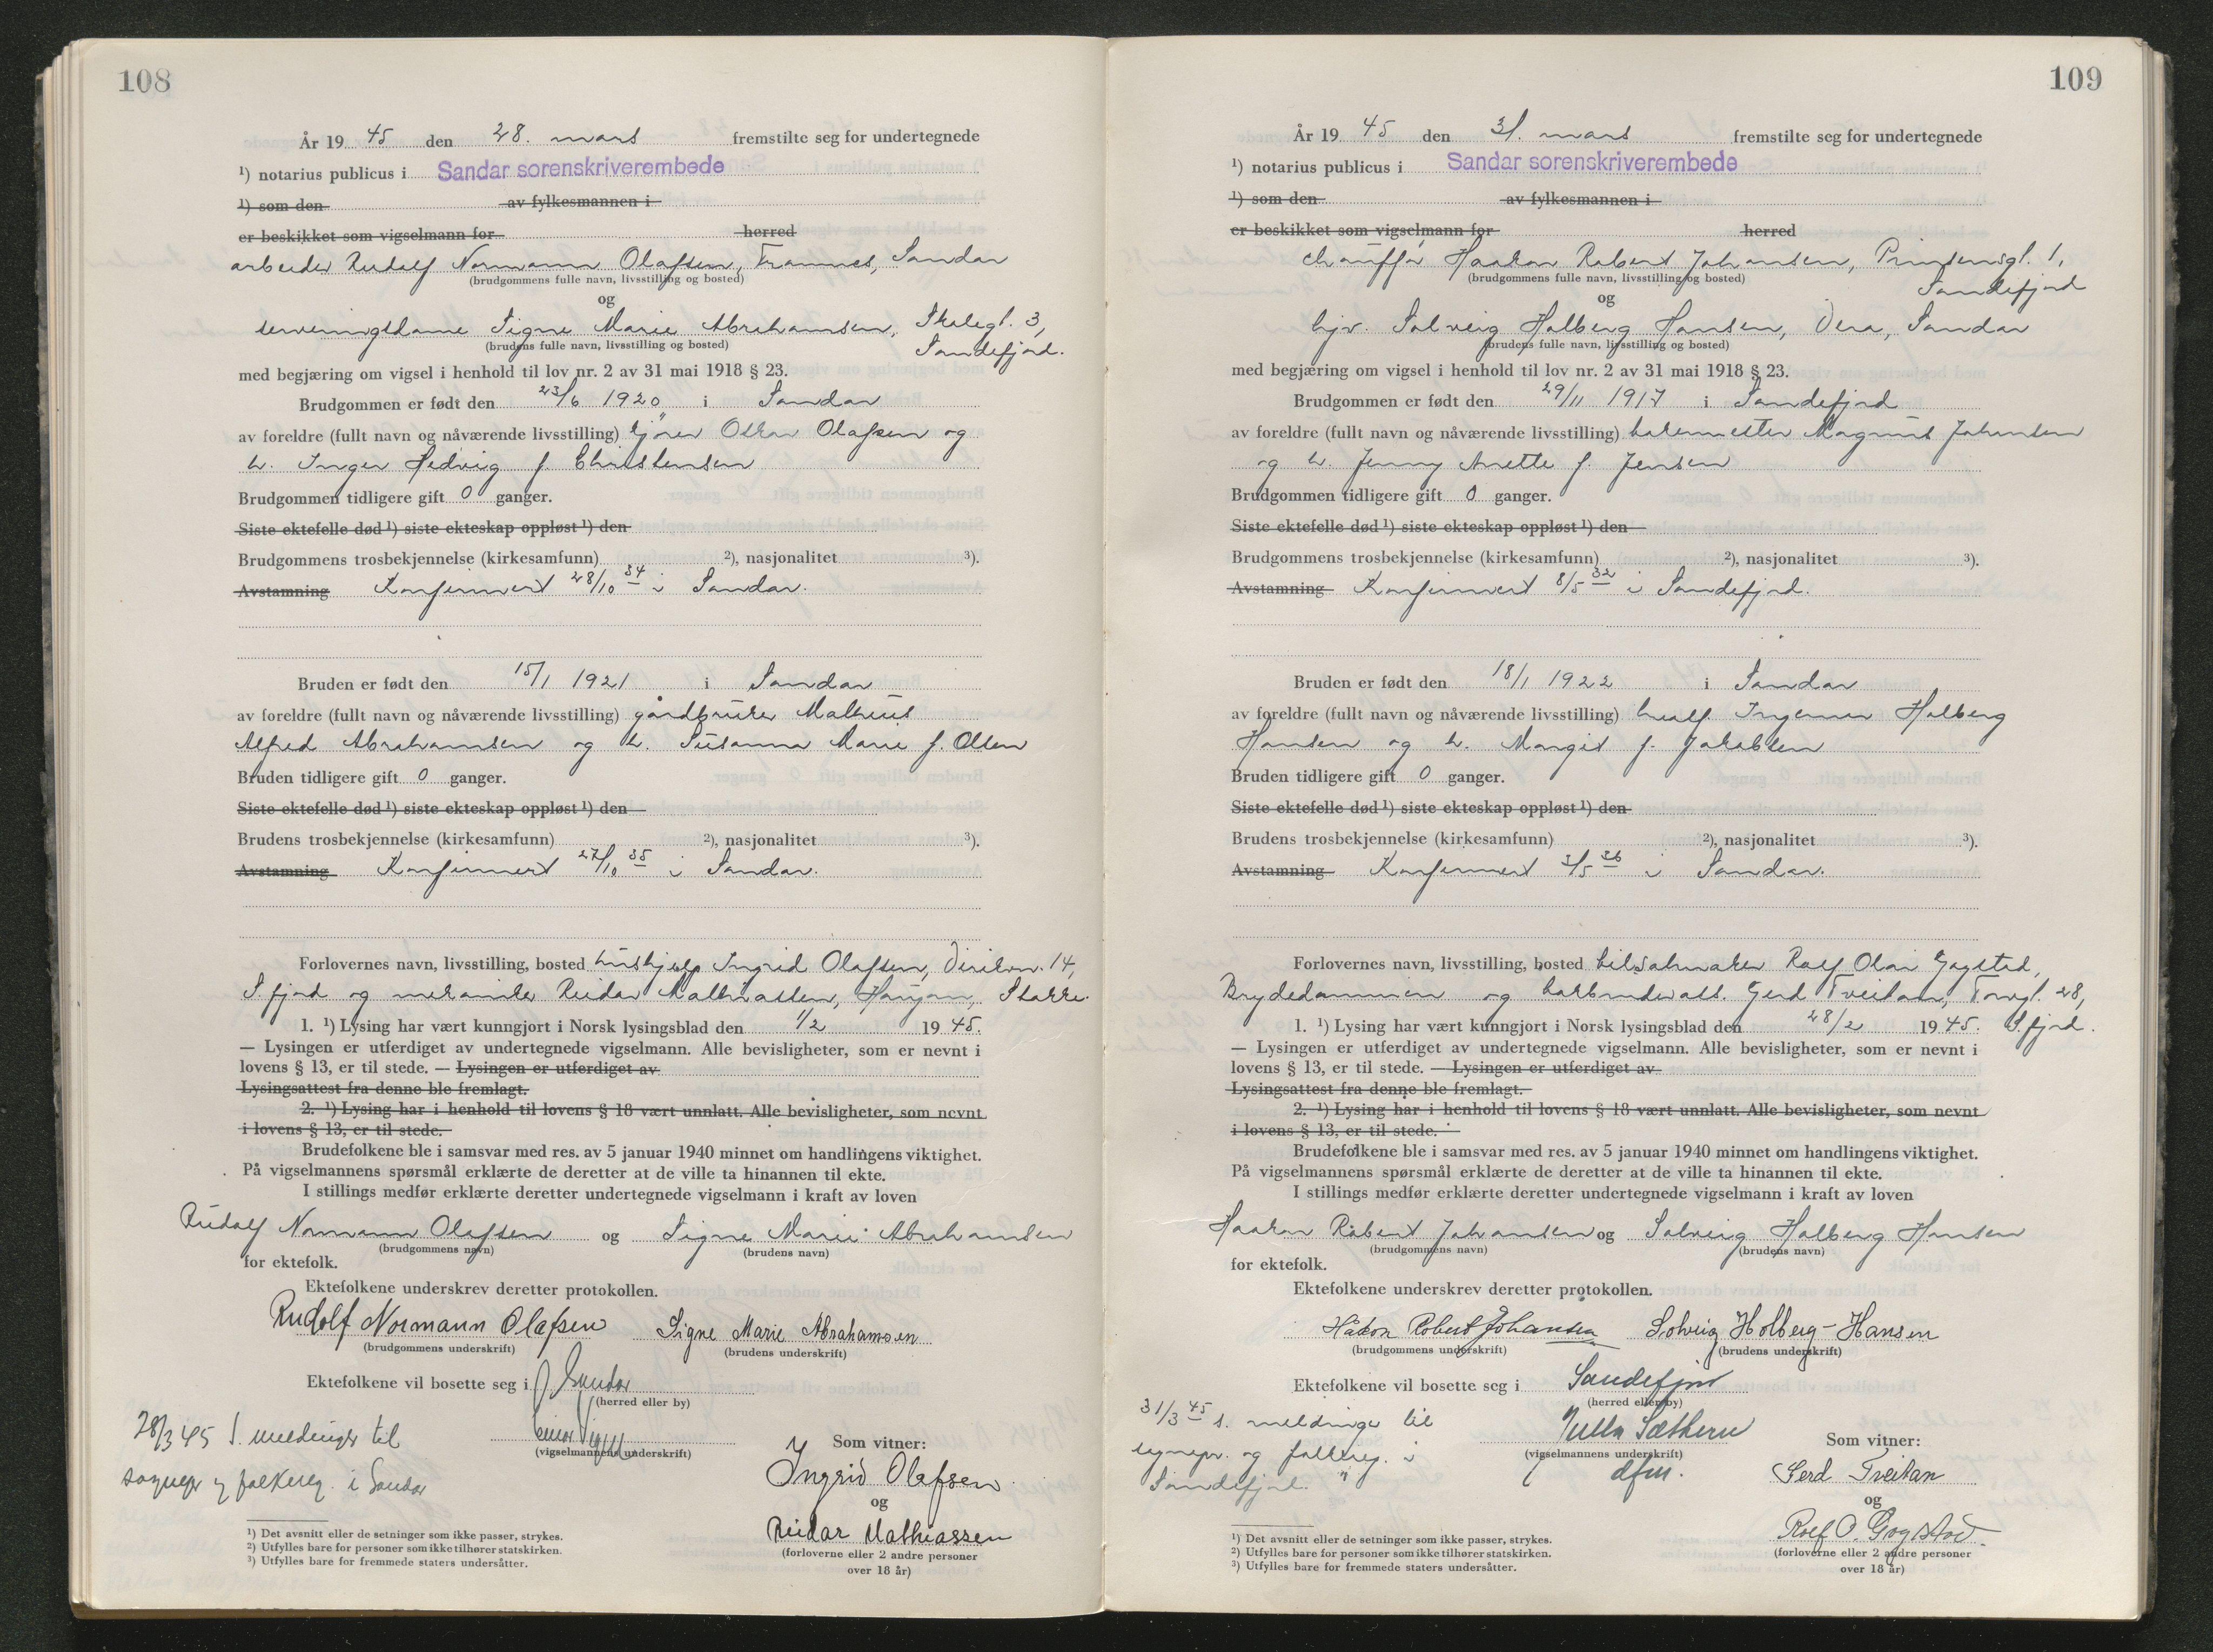 108
År 19 45 den 28. mars fremstilte seg for undertegnede
¹) notarius publicus i Sandar sorenskriverembede
¹) som den av fylkesmannen i
er beskikket som vigselmann for herred
arbeider Rudolf Normann Olafsen, Framnes, Sandar
(brudgommens fulle navn, livsstilling og bosted)
og
serveringsdame Signe Marie Abrahamsen, Skolegt. 3,
Sandefjord.
(brudens fulle navn, livsstilling og bosted)
med begjæring om vigsel i henhold til lov nr. 2 av 31 mai 1918 § 23.
Brudgommen er født den 23/6 1920 i Sandar
av foreldre (fullt navn og nåværende livsstilling) Oskar Olafsen og
h. Inger Hedvig f. Christensen
Brudgommen tidligere gift 0 ganger.
Siste ektefelle død ¹) siste ekteskap oppløst ¹) den
Brudgommens trosbekjennelse (kirkesamfunn) ²), nasjonalitet ³).
Avstamning Konfirmert 28/10 34 i Sandar.
Bruden er født den 15/1 1921 i Sandar
av foreldre (fullt navn og nåværende livsstilling) gårdbruker Mathius
Alfred Abrahamsen og h. Susanna Marie f. Olsen
Bruden tidligere gift 0 ganger.
Siste ektefelle død ¹) siste ekteskap oppløst ¹) den
Brudens trosbekjennelse (kirkesamfunn) ²), nasjonalitet ³).
Avstamning Konfirmert 27/10 35 i Sandar.
Forlovernes navn, livsstilling, bosted hushjelp Ingrid Olafsen, 14,
S.fjord og mekaniker Reidar Mathiassen, Haugan, Stokke.
1. ¹) Lysing har vært kunngjort i Norsk lysingsblad den 1/2 19 45.
— Lysingen er utferdiget av undertegnede vigselmann. Alle bevisligheter, som er nevnt i
lovens § 13, er til stede. — Lysingen er utferdiget av
Lysingsattest fra denne ble fremlagt.
2. ¹) Lysing har i henhold til lovens § 18 vært unnlatt. Alle bevisligheter, som nevnt
i lovens § 13, er til stede.
Brudefolkene ble i samsvar med res. av 5 januar 1940 minnet om handlingens viktighet.
På vigselmannens spørsmål erklærte de deretter at de ville ta hinannen til ekte.
I stillings medfør erklærte deretter undertegnede vigselmann i kraft av loven
Rudolf Normann Olafsen og Signe Marie Abrahamsen
(brudgommens navn) (brudens navn)
for ektefolk.
Ektefolkene underskrev deretter protokollen.
Rudolf Normann Olafsen Signe Marie Abrahamsen
(brudgommens underskrift) (brudens underskrift)
Ektefolkene vil bosette seg i Sandar
(herred eller by)
28/3 45 s. meldinger til
sognepr og folkereg. i Sandar
(vigselmannens underskrift)
Som vitner:
Ingrid Olafsen
og
Reidar Mathiassen
(forloverne eller 2 andre personer
over 18 år)
¹) Det avsnitt eller de setninger som ikke passer, strykes.
²) Utfylles bare for personer som ikke tilhører statskirken.
³) Utfylles bare for fremmede staters undersåtter.
109
År 19 45 den 31. mars fremstilte seg for undertegnede
¹) notarius publicus i Sandar sorenskriverembede
¹) som den av fylkesmannen i
er beskikket som vigselmann for herred
chauffør Haakon Robert Johansen, Prinsensgt. 1,
Sandefjord
(brudgommens fulle navn, livsstilling og bosted)
og
hjv. Solveig Holberg Hansen, Vera, Sandar
(brudens fulle navn, livsstilling og bosted)
med begjæring om vigsel i henhold til lov nr. 2 av 31 mai 1918 § 23.
Brudgommen er født den 29/11 1917 i Sandefjord
av foreldre (fullt navn og nåværende livsstilling) bakermester Magnus Johansen
og h. Jenny Anette f. Jensen
Brudgommen tidligere gift 0 ganger.
Siste ektefelle død ¹) siste ekteskap oppløst ¹) den
Brudgommens trosbekjennelse (kirkesamfunn) ²), nasjonalitet ³).
Avstamning Konfirmert 8/5 32 i Sandefjord.
Bruden er født den 18/1 1922 i Sandar
av foreldre (fullt navn og nåværende livsstilling) hvalf. Ingemar Holberg
Hansen og h. Margit f. Jakobsen
Bruden tidligere gift 0 ganger.
Siste ektefelle død ¹) siste ekteskap oppløst ¹) den
Brudens trosbekjennelse (kirkesamfunn) ²), nasjonalitet ³).
Avstamning Konfirmert 3/5 36 i Sandar.
Forlovernes navn, livsstilling, bosted bilsalmaker Rolf Olai Gogstad,
Brydedammen og Gerd Tveitan, Torvgt. 28,
S.fjord.
1. ¹) Lysing har vært kunngjort i Norsk lysingsblad den 28/2 19 45.
— Lysingen er utferdiget av undertegnede vigselmann. Alle bevisligheter, som er nevnt i
lovens § 13, er til stede. — Lysingen er utferdiget av
Lysingsattest fra denne ble fremlagt.
2. ¹) Lysing har i henhold til lovens § 18 vært unnlatt. Alle bevisligheter, som nevnt
i lovens § 13, er til stede.
Brudefolkene ble i samsvar med res. av 5 januar 1940 minnet om handlingens viktighet.
På vigselmannens spørsmål erklærte de deretter at de ville ta hinannen til ekte.
I stillings medfør erklærte deretter undertegnede vigselmann i kraft av loven
Haakon Robert Johansen og Solveig Holberg Hansen
(brudgommens navn) (brudens navn)
for ektefolk.
Ektefolkene underskrev deretter protokollen.
Håkon Robert Johansen Solveig Holberg-Hansen
(brudgommens underskrift) (brudens underskrift)
Ektefolkene vil bosette seg i Sandefjord
(herred eller by)
31/3 45 s. meldinger til
sognepr. og folkereg. i
Sandefjord.
(vigselmannens underskrift)
dfm.
Som vitner:
Gerd Tveitan
og
Rolf O. Gogstad
(forloverne eller 2 andre personer
over 18 år)
¹) Det avsnitt eller de setninger som ikke passer, strykes.
²) Utfylles bare for personer som ikke tilhører statskirken.
³) Utfylles bare for fremmede staters undersåtter.